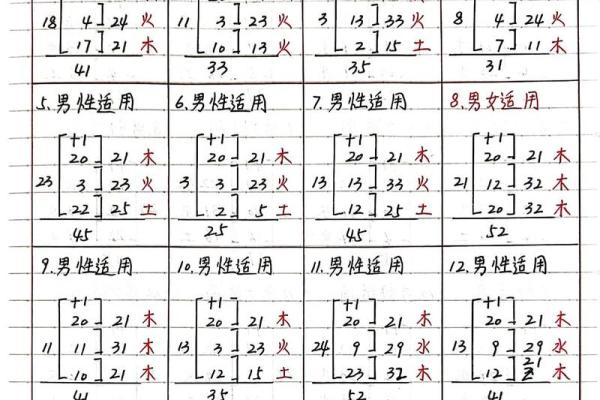 18 4 24 火 11 3 23 火 3 13 33 火 8 4 24 火
17 21 木 10 13 火 2 15 土 7 11 木
41 33 35 31
5.男性适用 6.男性适用 7.男性适用 8.男女适用
+1 +1 +1 +1
20 21 木 20 21 木 20 21 木 20 21 木
23 3 23 火 3 3 23 火 13 13 33 火 21 12 32 木
22 25 土 2 5 土 12 25 土 20 32 木
45 25 45 52
9.男性适用 10.男性适用 11.男性适用 12.男性适用
+1 +1 +1 +1
20 21 木 20 21 木 20 21 木 20 21 木
11 11 31 木 13 3 23 火 24 9 29 水 13 9 29 水
10 21 木 12 15 土 23 32 木 12 21 木
41 35 52 41